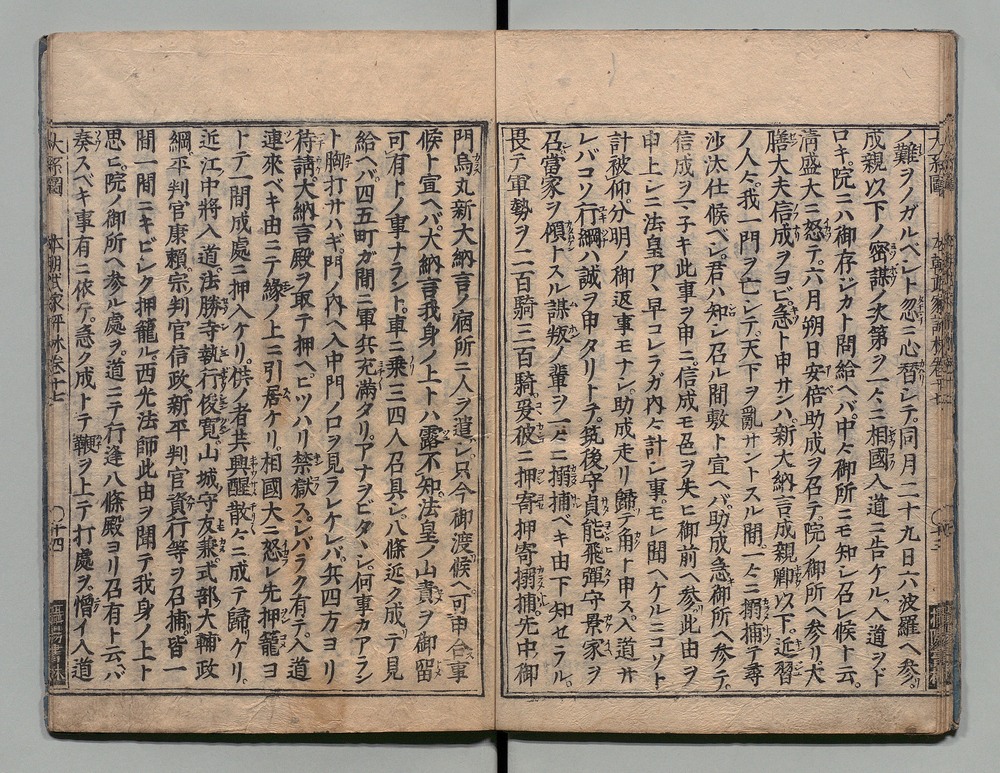 ノ難ヲノガルベシト忽ニ心替シテ同月二十九日六波羅ヘ參リ
成親以下ノ密謀ノ次第ヲ一々ニ相國入道ニ告ケル入道ヲド
ロキ院ニハ御存ジカト問給ヘバ中々御所ニモ知シ召レ候ト云
清盛大ニ怒テ六月朔日安倍助成ヲ召テ院ノ御所ヘ參リ大
膳大夫信成ヲヨビ急ト申サンハ新大納言成親卿以下近習
ノ人々我一門ヲ亡シテ天下ヲ亂サントスル間一々ニ搦捕テ尋
沙汰仕候ベシ君ハ知シ召ル間敷ト宣ヘバ助成急御所ヘ參テ
信成ヲ以テ此事ヲ申ニ信成モ色ヲ失ヒ御前ヘ參此由ヲ
申上シニ法皇アハ早コレラガ内々計シ事モレ聞ヘケルニコソト
計被仰分明ノ御返事モナシ助成走リ歸テ角ト申ス入道サ
レバコソ行綱ハ誠ヲ申タリトテ筑後守貞能飛彈守景家ヲ
召當家ヲ傾トスル謀叛ノ輩ヲ一々ニ搦捕ベキ由下知セラル
畏テ軍勢ヲ二百騎三百騎爰彼ニ押寄押寄搦捕先中御
門烏丸新大納言ノ宿所ニ人ヲ遣シ只今御渡候ヘ可申合事
候ト宣ヘバ大納言我身ノ上トハ露不知法皇ノ山責ヲ御留
可有トノ事ナラント車ニ乘三四人召具シ八條近ク成テ見
給ヘバ四五町ガ間ニ軍兵充滿タリアナヲビタヽシ何事カアラン
ト胸打サハギ門ノ内ヘ入中門ノ口ヲ見ラレケレバ兵四方ヨリ
待請大納言殿ヲ取テ押ヘヒツハリ禁獄スシバラク有テ入道
連來ベキ由ニテ緣ノ上ニ引居ケリ相國大ニ怒レ先押籠ヨ
トテ一間成處ニ押入ケリ供ノ者共興醒散々ニ成テ歸ケリ
近江中將入道法勝寺執行俊寛山城守友兼式部大輔政
綱平判官康賴宗判官信政新平判官資行等ヲ召捕皆一
間一間ニキビシク押籠ル西光法師此由ヲ聞テ我身ノ上ト
思ヒ院ノ御所ヘ參ル處ヲ道ニテ行逢八條殿ヨリ召有ト云バ
奏スベキ事有ニ依テ急ク成トテ鞭ヲ上テ打處ヲ憎イ入道
本朝武家評林卷十七
十四